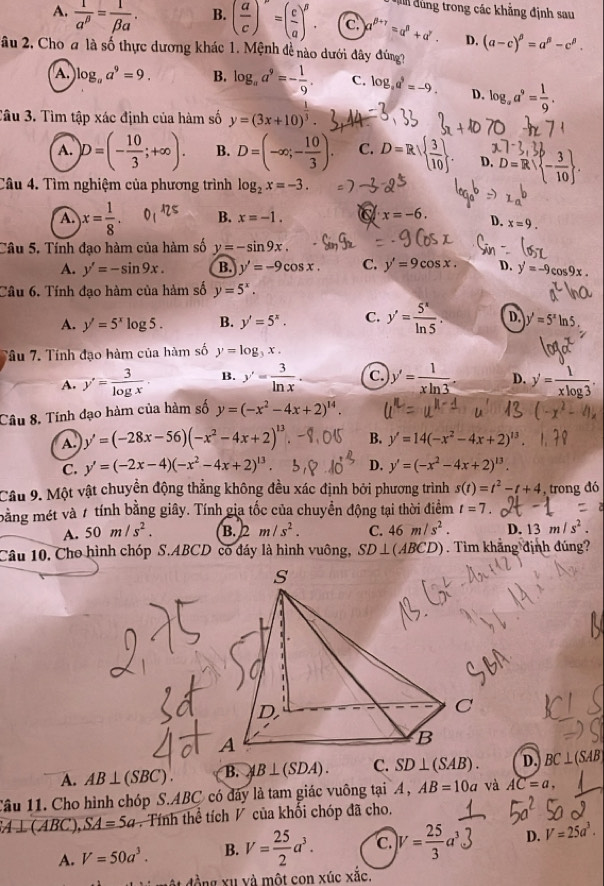 đúng trong các khẳng định sau
A. 1/a^β = 1/βa. B. (a/c)^β = (c/a)^β. C. a^{β+γ} = a^β + a^γ. D. (a − c)^β = a^β − c^β.
Câu 2. Cho a là số thực dương khác 1. Mệnh đề nào dưới đây đúng?
A. log_a a^9 = 9. B. log_a a^9 = −1/9. C. log_a a^9 = −9. D. log_a a^9 = 1/9.
Câu 3. Tìm tập xác định của hàm số y = (3x + 10)^{1/3}. 3,14 −3,33 3x + 10 > 0
A. D = (−10/3; +∞). B. D = (−∞; −10/3). C. D = R \ {3/10}. D. D = R \ {−3/10}.
Câu 4. Tìm nghiệm của phương trình log_2 x = −3. log_a b
A. x = 1/8. 0,125 B. x = −1. C. x = −6. D. x = 9.
Câu 5. Tính đạo hàm của hàm số y = −sin 9x. −sin 9x = −9 cos x sin = cos x
A. y' = −sin 9x. B. y' = −9cos x. C. y' = 9cos x. D. y' = −9cos 9x.
Câu 6. Tính đạo hàm của hàm số y = 5^x. a^x ln a
A. y' = 5^x log 5. B. y' = 5^x. C. y' = 5^x/ln 5. D. y' = 5^x ln 5.
Câu 7. Tính đạo hàm của hàm số y = log_3 x.
A. y' = 3/log x. B. y' = 3/ln x. C. y' = 1/(x ln 3). D. y' = 1/(x log 3).
Câu 8. Tính đạo hàm của hàm số y = (−x² − 4x + 2)^14.
A. y' = (−28x − 56)(−x² − 4x + 2)^13. −8,015 B. y' = 14(−x² − 4x + 2)^13. 1,78
C. y' = (−2x − 4)(−x² − 4x + 2)^13. D. y' = (−x² − 4x + 2)^13.
Câu 9. Một vật chuyển động thẳng không đều xác định bởi phương trình s(t) = t² − t + 4, trong đó
bằng mét và t tính bằng giây. Tính gia tốc của chuyển động tại thời điểm t = 7. 2t − 1
A. 50 m/s². B. 2 m/s². C. 46 m/s². D. 13 m/s².
Câu 10. Cho hình chóp S.ABCD có đáy là hình vuông, SD ⊥ (ABCD). Tìm khẳng định đúng?
S
2,75
SBA
3đ
4đ
D C
A B
A. AB ⊥ (SBC). B. AB ⊥ (SDA). C. SD ⊥ (SAB). D. BC ⊥ (SAB)
Câu 11. Cho hình chóp S.ABC có đáy là tam giác vuông tại A, AB = 10a và AC = a,
SA ⊥ (ABC), SA = 5a. Tính thể tích V của khối chóp đã cho.
A. V = 50a³. B. V = 25/2 a³. C. V = 25/3 a³. D. V = 25a³.
đồng xu và một con xúc xắc.